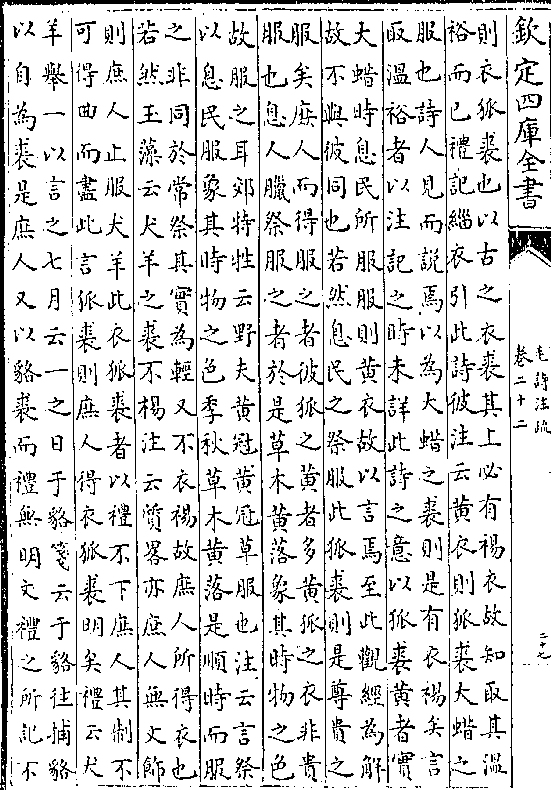 欽定四庫全書
毛詩注疏
卷二十二
二十九
則衣狐裘也以古之衣裘其上必有裼衣故知取其溫
裕而已禮記緇衣引此詩彼注云黃衣則狐裘大蜡之
服也詩人見而說焉以為大蜡之裘則是有衣裼矣言
取溫裕者以注記之時未詳此詩之意以狐裘黃者實
大蜡時息民所服服則黃衣故以言焉至此觀經為解
故不與彼同也若然息民之祭服此狐裘則是尊貴之
服矣庶人而得服之者彼狐之黃者多黃狐之衣非貴
服也息人臘祭服之者於是草木黃落象其時物之色
故服之耳郊特牲云野夫黃冠黃冠草服也注云言祭
以息民服象其時物之色季秋草木黃落是順時而服
之非同於常祭其實為輕又不衣裼故庶人所得衣也
若然玉藻云犬羊之裘不裼注云質畧亦庶人無文飾
則庶人止服犬羊此衣狐裘者以禮不下庶人其制不
可得曲而盡此言狐裘則庶人得衣狐裘明矣禮云犬
羊舉一以言之七月云一之日于貉箋云于貉往捕貉
以自為裘是庶人又以貉裘而禮無明文禮之所記不